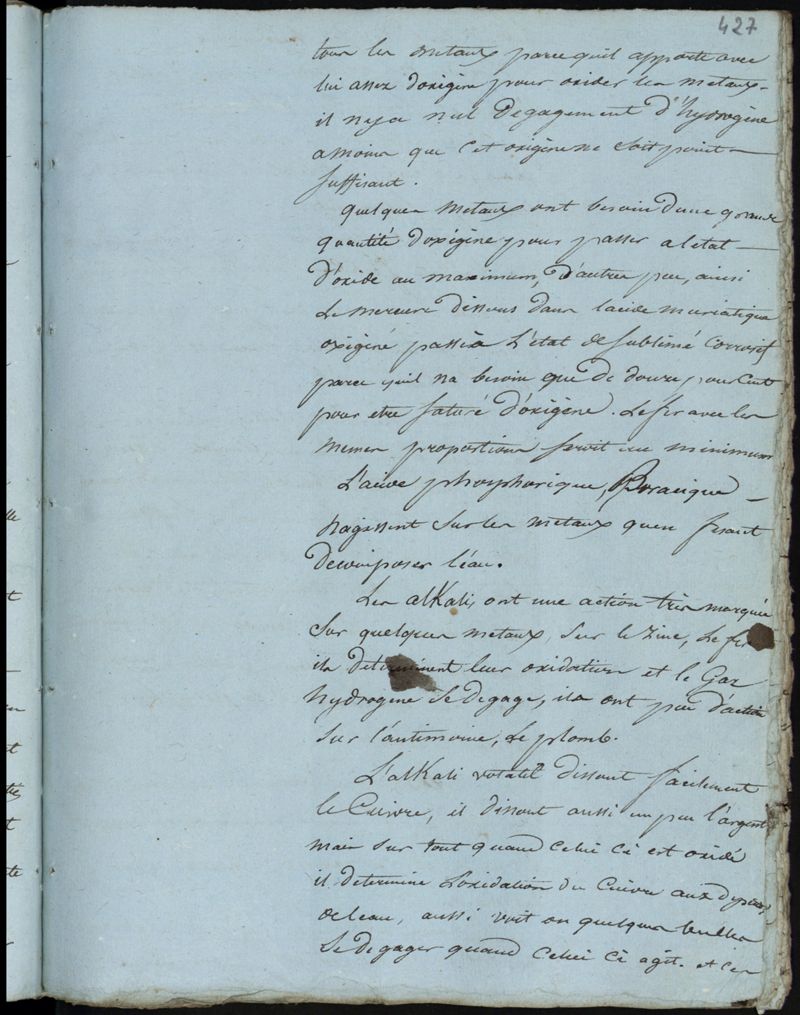 427
tous les metaux parce quil apporte avec
lui assez d'oxigène pour oxider les metaux.
il nya nul Degagement d'hydrogène
amoins que cet oxigène ne soit point
suffisant.
quelques metaux ont besoin d'une grande
quantité d'oxigène pour passer a letat
d'oxide au maximum, d'autres peu, ainsi
Le mercure dissous dans lacide muriatique
oxigéné passe à L'état de sublimé corrosif
parce quil na besoin que de douze pour cent
pour etre saturé d'oxigène. Le fer avec les
memes proportions seroit au minimum
L'acide phosphorique, Boracique
nagissent sur les metaux quen fesant
Decomposer l'éau.
Les alKalis ont une action très marquée
sur quelques metaux, sur le Zinc, Le fer
ils determinent leur oxidation et le Gaz
hydrogène se degage, ils ont peu d'action
sur l'antimoine, Le plomb.
L'alKali volatil dissout facilement
le Cuivre, il dissout aussi un peu l'argent
mais sur tout quand celui ci est oxidé
il determine Loxidation du Cuivre aux depens
de leau, aussi voit on quelques bulles
se degager quand celui ci agit. et ces